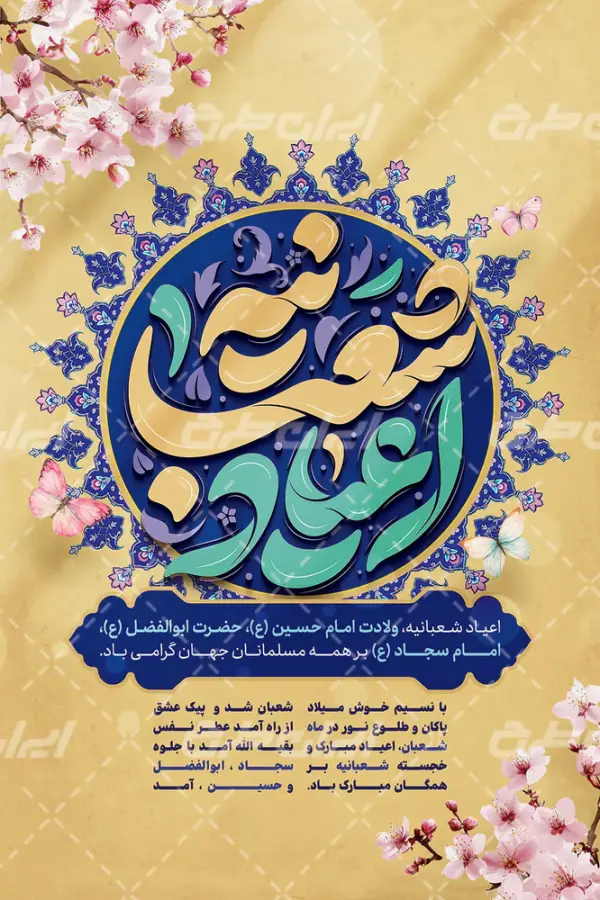 اعیاد شعبانیه
اعیاد شعبانیه، ولادت امام حسین (ع)، حضرت ابوالفضل (ع)،
امام سجاد (ع) بر همه مسلمانان جهان گرامی باد.
با نسیم خوش میلاد
پاکان و طلوع نور در ماه
شعبان، اعیاد مبارک و
خجسته شعبانیه بر
همگان مبارک باد.
شعبان شد و پیک عشق
از راه آمد عطر نفس
بقیه الله آمد با جلوه
سجاد ، ابوالفضل
و حسین ، آمد
ایران طرح